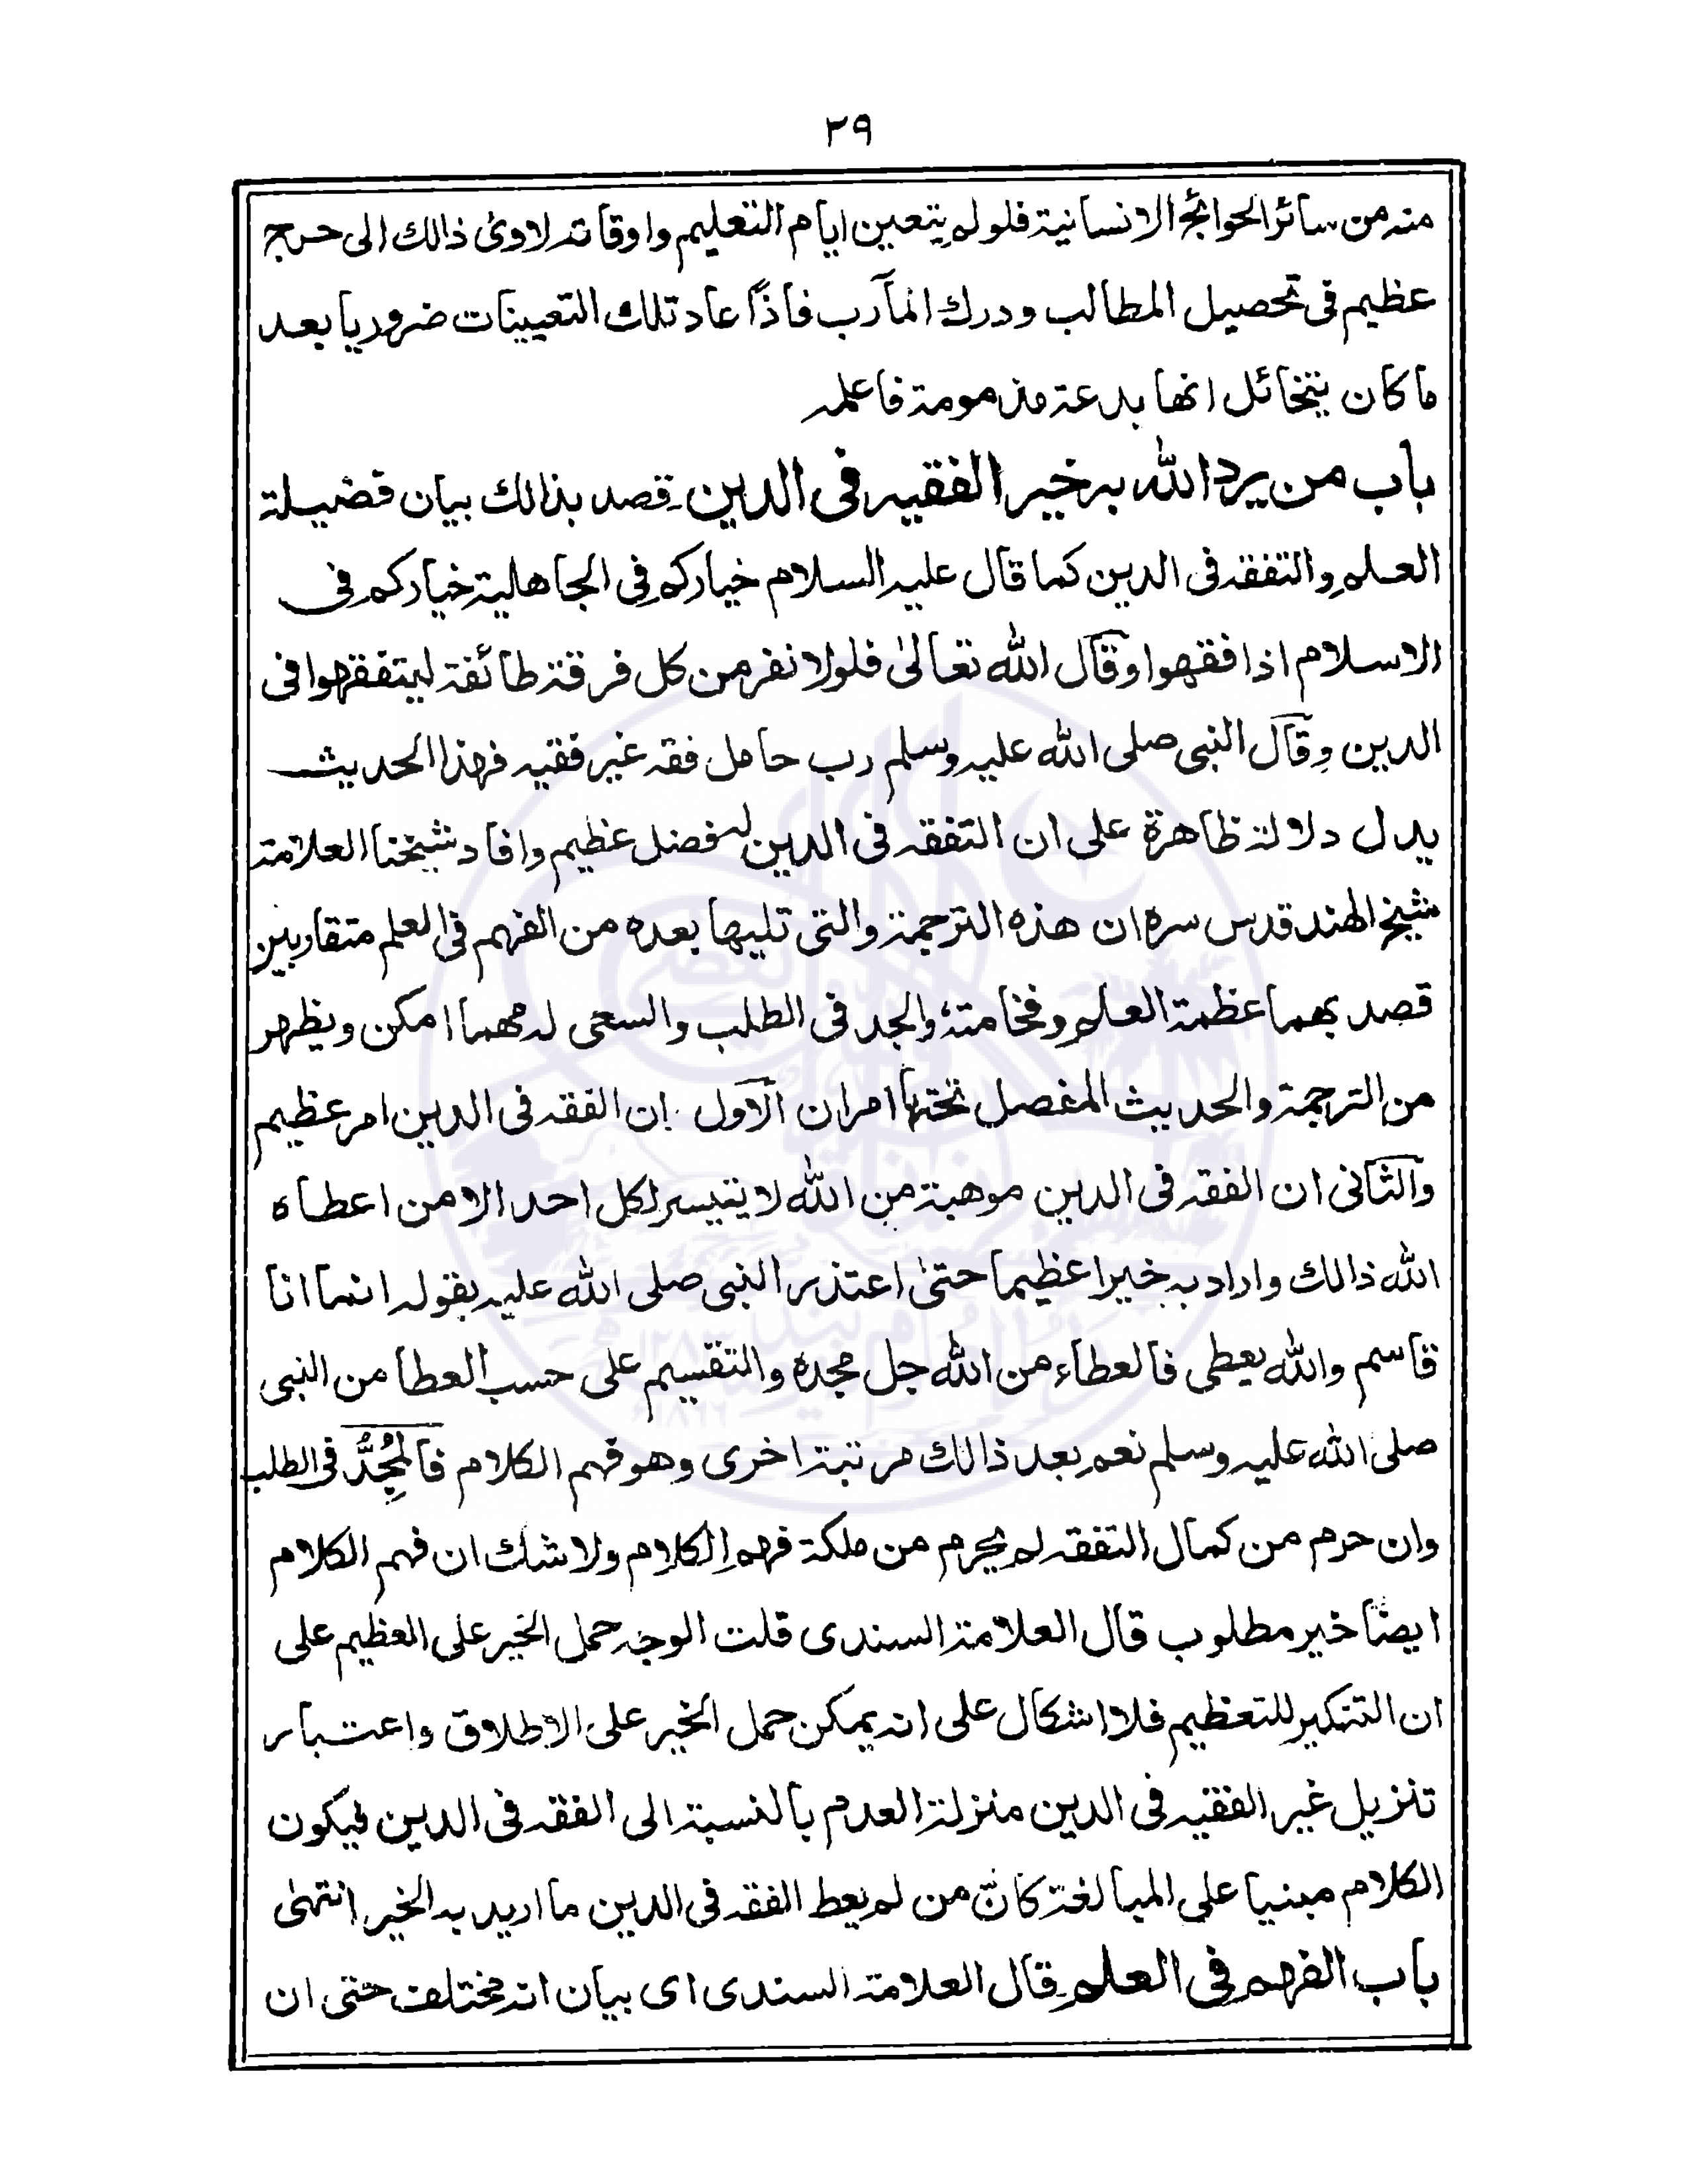 ٢٩
منه من سائر الحوائج الانسانية فلو لم يتعين ايام التعليم واوقاته لاوئ ذالك الى حرج
عظيم فى تحصيل المطالب ودرك المآرب فاذًا عاد تلك التعيينات ضروريا بعد
ما كان يتخائل انها بدعة مذمومة فاعلمه
باب من يرد الله به خير الفقيه فى الدين قصد بذالك بيان فضيلة
العلم والتفقه فى الدين كما قال عليه السلام خياركم فى الجاهلية خياركم فى
الاسلام اذا فقهوا وقال الله تعالىٰ فلولا نفر من كل فرقة طائفة ليتفقهوا فى
الدين وقال النبى صلى الله عليه وسلم رب حامل فقه غير فقيه فهذا الحديث
يدل دلالة ظاهرة على ان التفقه فى الدين له فضل عظيم وافاد شيخنا العلامة
شيخ الهند قدس سره ان هذه الترجمة والتى تليها بعده من الفهم فى العلم متقاربين
قصد بهما عظمة العلم وفخامته والجد فى الطلب والسعى له مهما امكن ويظهر
من الترجمة والحديث المفصل تحتها امران الاول ان الفقه فى الدين امر عظيم
والثانى ان الفقه فى الدين موهبة من الله لا يتيسر لكل احد الا من اعطاه
الله ذالك واراد به خيرا عظيما حتىٰ اعتذر النبى صلى الله عليه بقوله انما انا
قاسم والله يعطى فالعطاء من الله جل مجده والتقسيم على حسب العطا من النبى
صلى الله عليه وسلم نعم بعد ذالك مرتبة اخرى وهو فهم الكلام فالمُجِدُّ فى الطلب
وان حرم من كمال التفقه لم يحرم من ملكة فهم الكلام ولا شك ان فهم الكلام
ايضًا خير مطلوب قال العلامة السندى قلت الوجه حمل الخير على العظيم على
ان التنكير للتعظيم فلا اشكال على انه يمكن حمل الخير على الاطلاق واعتبار
تنزيل غير الفقيه فى الدين منزلة العدم بالنسبة الى الفقه فى الدين فيكون
الكلام مبنيا على المبالغة كانّ من لم يعط الفقه فى الدين ما اريد به الخير انتهىٰ
باب الفهم فى العلم قال العلامة السندى اى بيان انه مختلف حتى ان